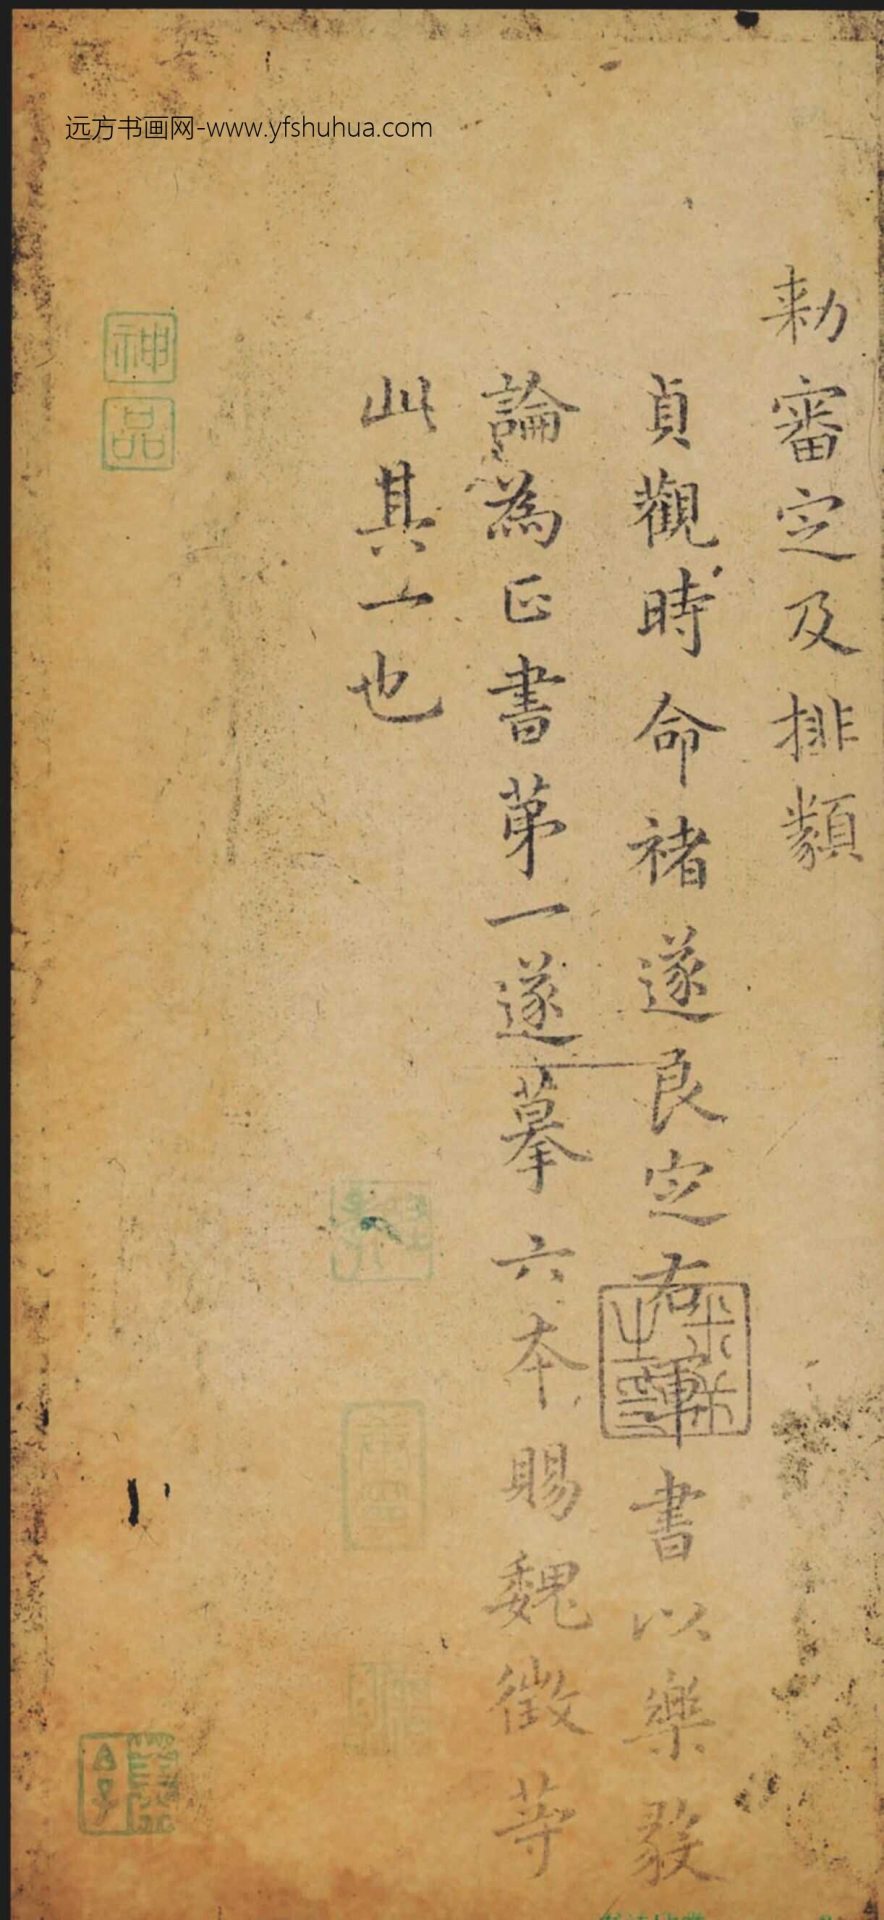 远方书画网-www.yfshuhua.com
勑審定及排類
貞觀時命褚遂良定右軍書以樂毅
論為正書第一遂摹六本賜魏徵等
此其一也
神品